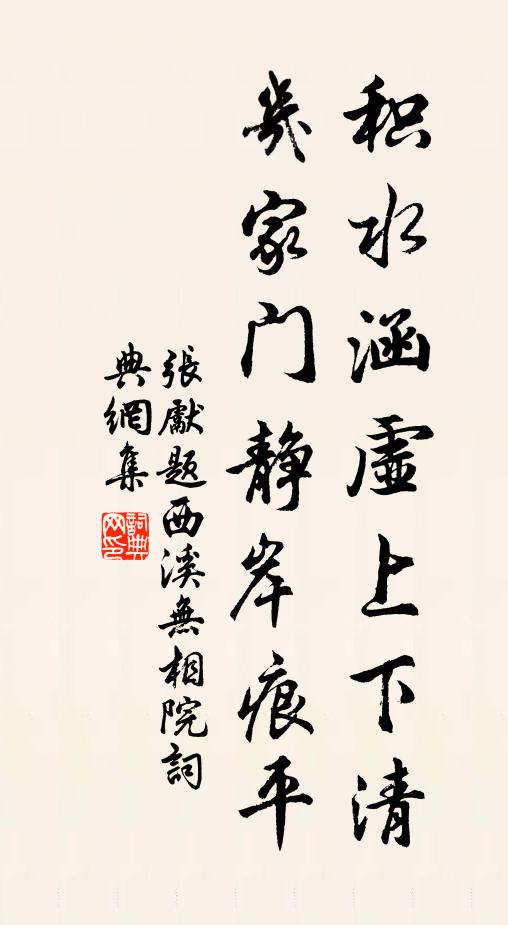 积水涵虚上下清
几家门静岸痕平
張獻題西溪無相院詞
典網集
詞典网印